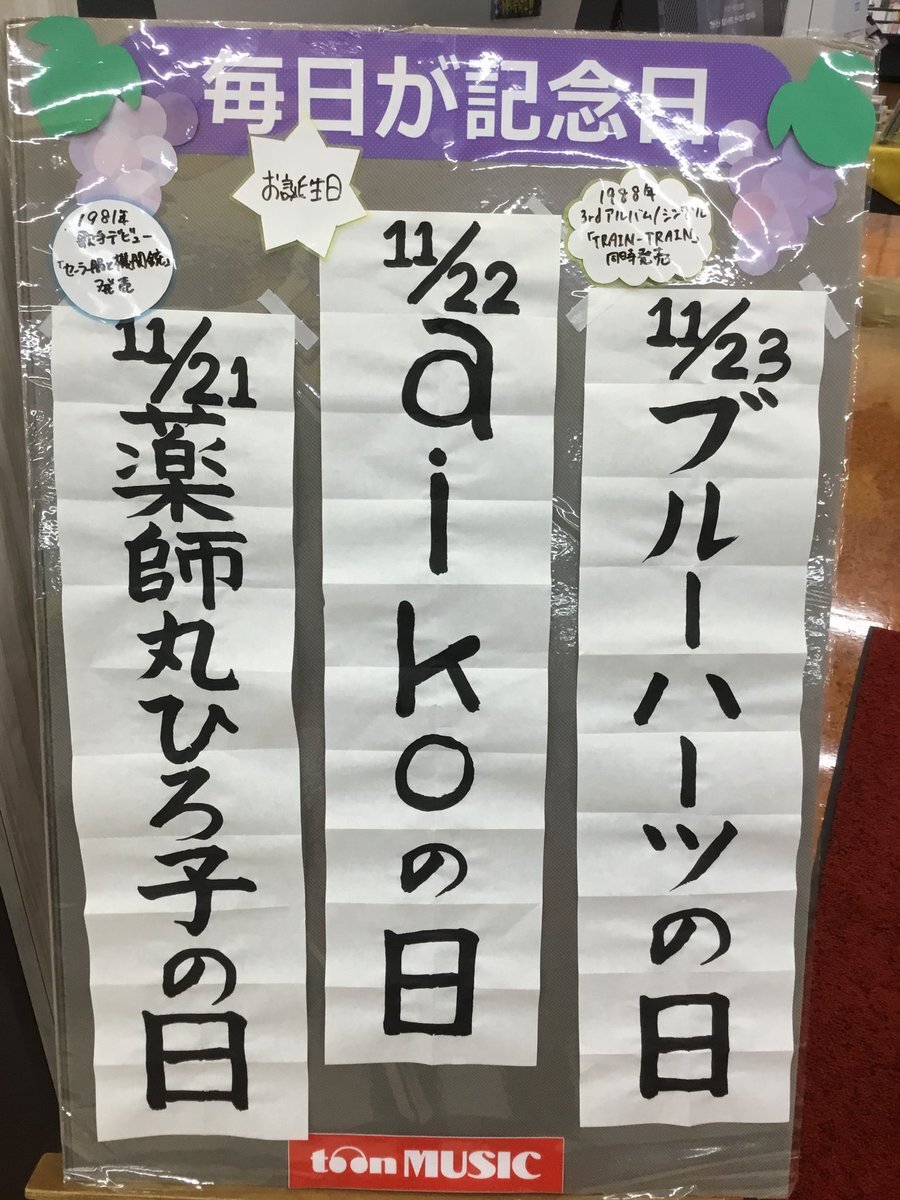 毎日が記念日
1981年
歌手デビュー
「セーラー服と機関銃」
発売
11/21
薬師丸ひろ子の日
お誕生日
11/22
aikoの日
1988年
3rdアルバム/シングル
「TRAIN-TRAIN」
同時発売
11/23
ブルーハーツの日
toon MUSIC